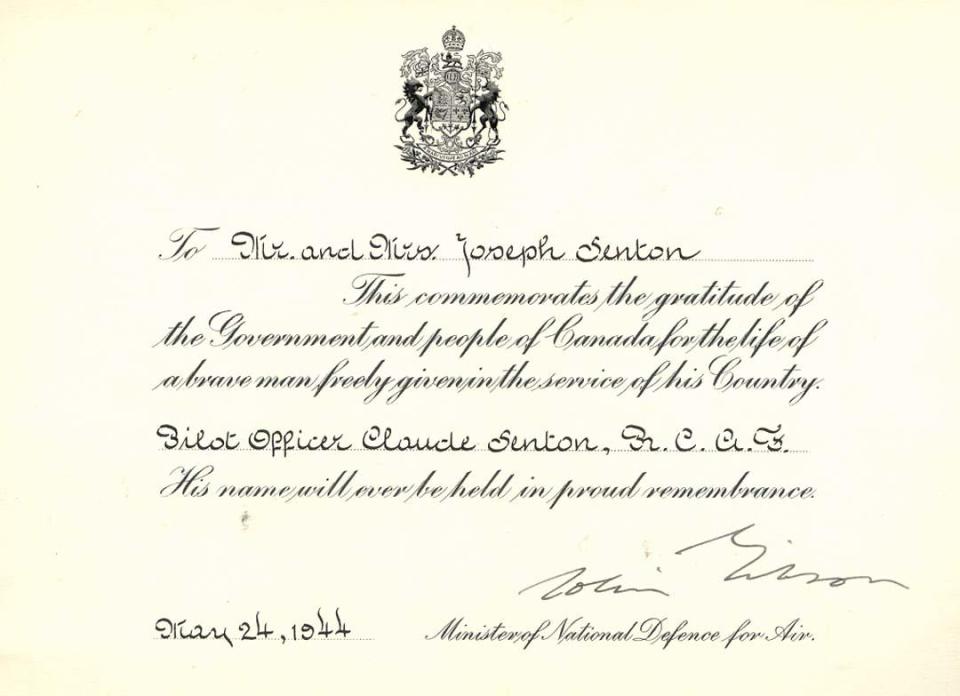 To Mr. and Mrs. Joseph Senton
This commemorates the gratitude of
the Government and people of Canada for the life of
a brave man freely given in the service of his Country.
Pilot Officer Claude Senton, R. C. A. F.
His name will ever be held in proud remembrance.
Colin Gibson
May 24, 1944 Minister of National Defence for Air.